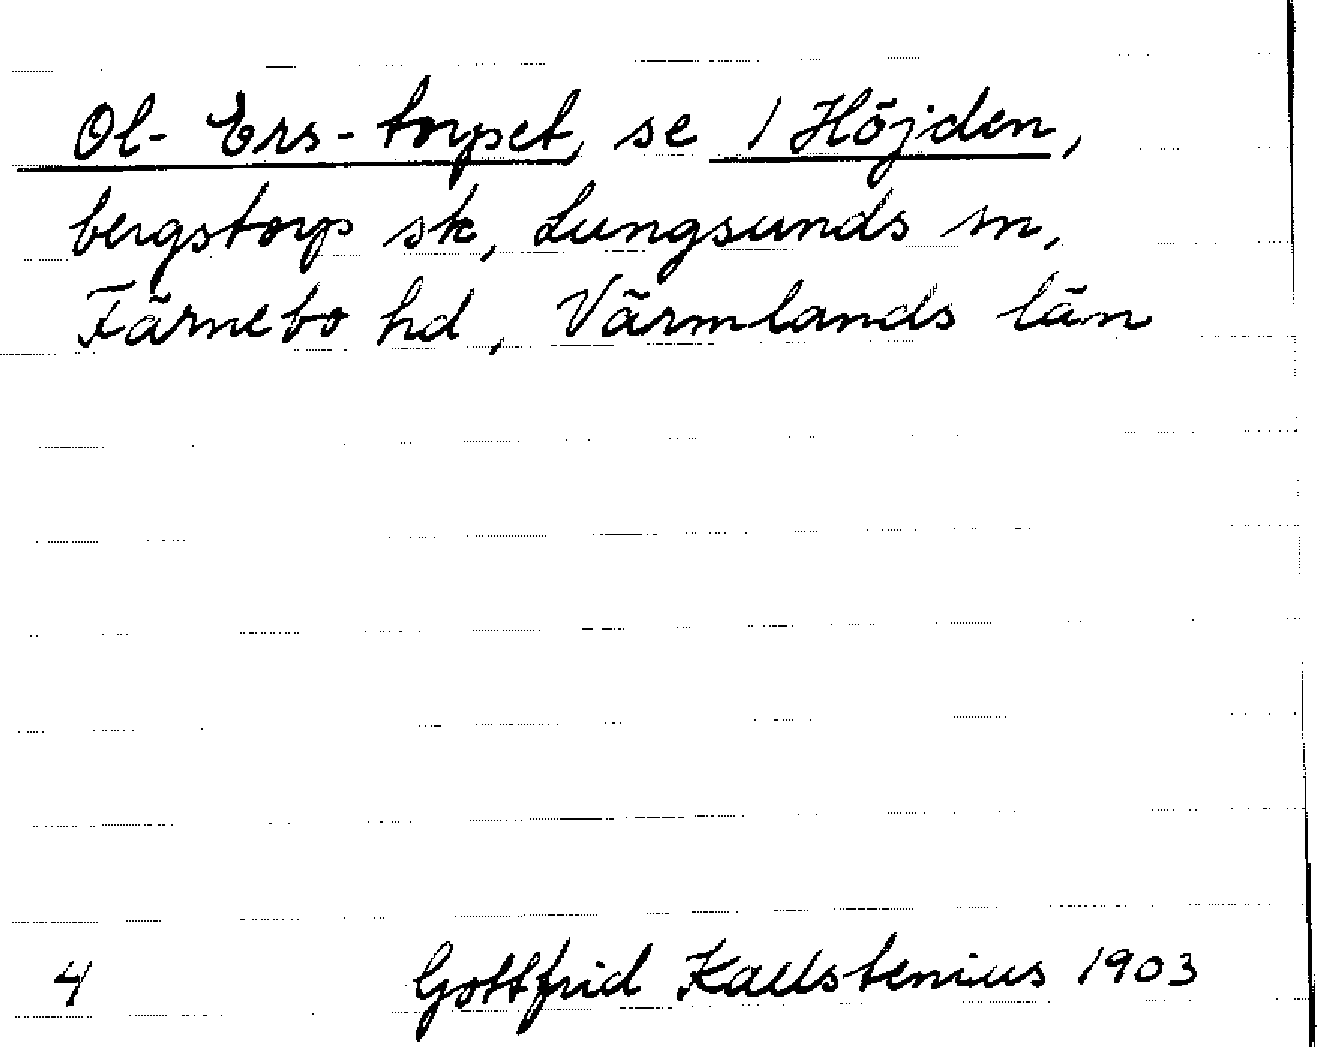 Ol-Ers-torpet, se 1 Höjden,
bergstorp sk, Lungsunds sn,
Färnebo hd, Värmlands län
4 Gottfrid Kallstenius 1903